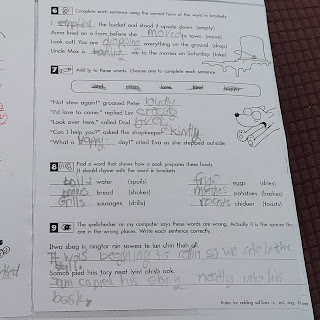 6 Complete each sentence using the correct form of the word in brackets.
I emptied the bucket and stood it upside down. (empty)
Anna lived on a farm before she moved to town. (move)
Look out! You are dropping everything on the ground. (drop)
Uncle Max is taking me to the movies on Saturday. (take)
7 Add ly to these words. Choose one to complete each sentence.
"Not stew again!" groaned Peter loudly
"I'd love to come," replied Lim
"Look over here," called Dad
"Can I help you?" asked the shopkeeper kindly
"What a day!" cried Eva as she stepped outside.
8 Find a word that shows how a cook prepares these foods.
It should rhyme with the word in brackets.
boils water (spoils)
bread (shokes)
Grills sausages (drills)
fries eggs (dries)
mashes potatoes (bashes)
roasts chicken (toasts)
9 The spellchecker on my computer says these words are wrong. Actually it is the spaces that
are in the wrong places. Write each sentence correctly.
Itwa sbeg in ningtor ain sowea te lun chin theh all.
It was begining to rain so we ate in the
hall.
Samco pied hiss tory neat lyint ohisb ook.
Sam copied his story neatly into his
book.
Rules for adding suffixes